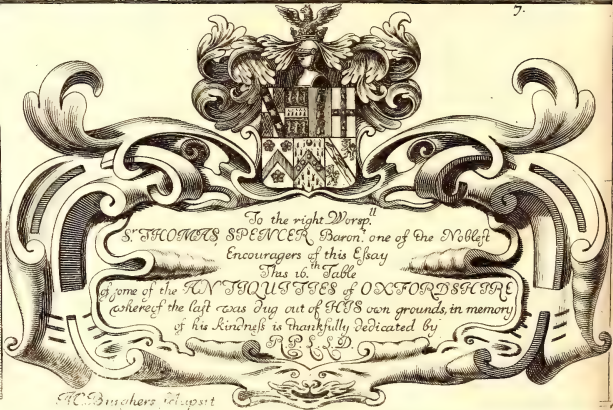 7.
To the right Worsp.ll
Sr. THOMAS SPENCER Baron.t one of the Noblest
Encouragers of this Eſsay
This 16.th Table
of some of the ANTIQUITIES of OXFORDSHIRE
whereof the laſt was dug out of HIS own grounds, in memory
of his kindneſs is thankfully dedicated by
R.P.L.L.D.
M Burghers sculpsit